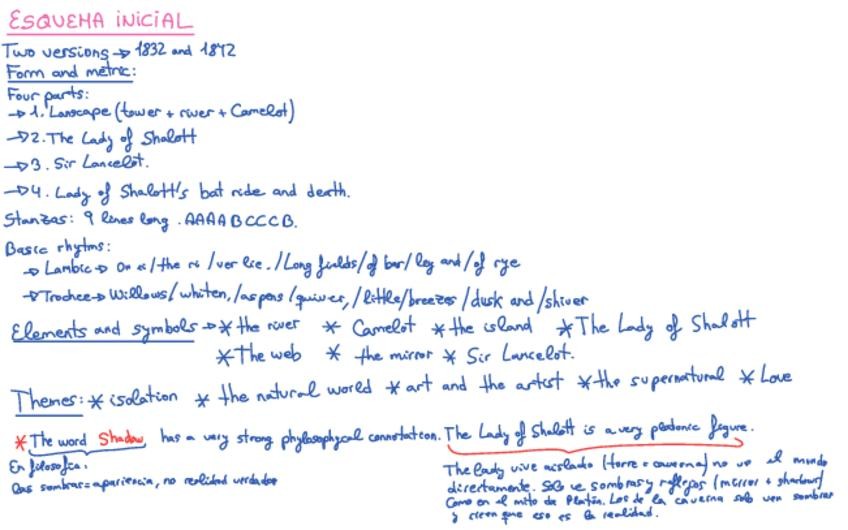 ESQUEMA INICIAL
Two versions → 1832 and 1842
Form and metric:
Four parts:
→ 1. Lanscape (tower + river + Camelot)
→ 2. The Lady of Shalott
→ 3. Sir Lancelot.
→ 4. Lady of Shalott's bat ride and death.
Stanzas: 9 lines long. AAAABCCCB.
Basic rhytms:
→ Lambic → On ei/the ri/ver lie./Long fields/of bar/ley and/of rye
→ Trochee → Willows/whiten,/aspens/quiver,/little/breezes/dusk and/shiver
Elements and symbols → * the river * Camelot * the island * The Lady of Shalott
* The web * the mirror * Sir Lancelot.
Themes: * isolation * the natural world * art and the artist * the supernatural * Love
* The word Shadow has a very strong phylosophycal connotation. The Lady of Shalott is a very platonic figure.
En filosofía:
las sombras = apariencia, no realidad verdadera
The lady vive aislada (torre = caverna) no ve el mundo
directamente. Solo ve sombras y reflejos (mirror + shadows)
Como en el mito de Platón. Los de la caverna solo ven sombras
y creen que eso es la realidad.